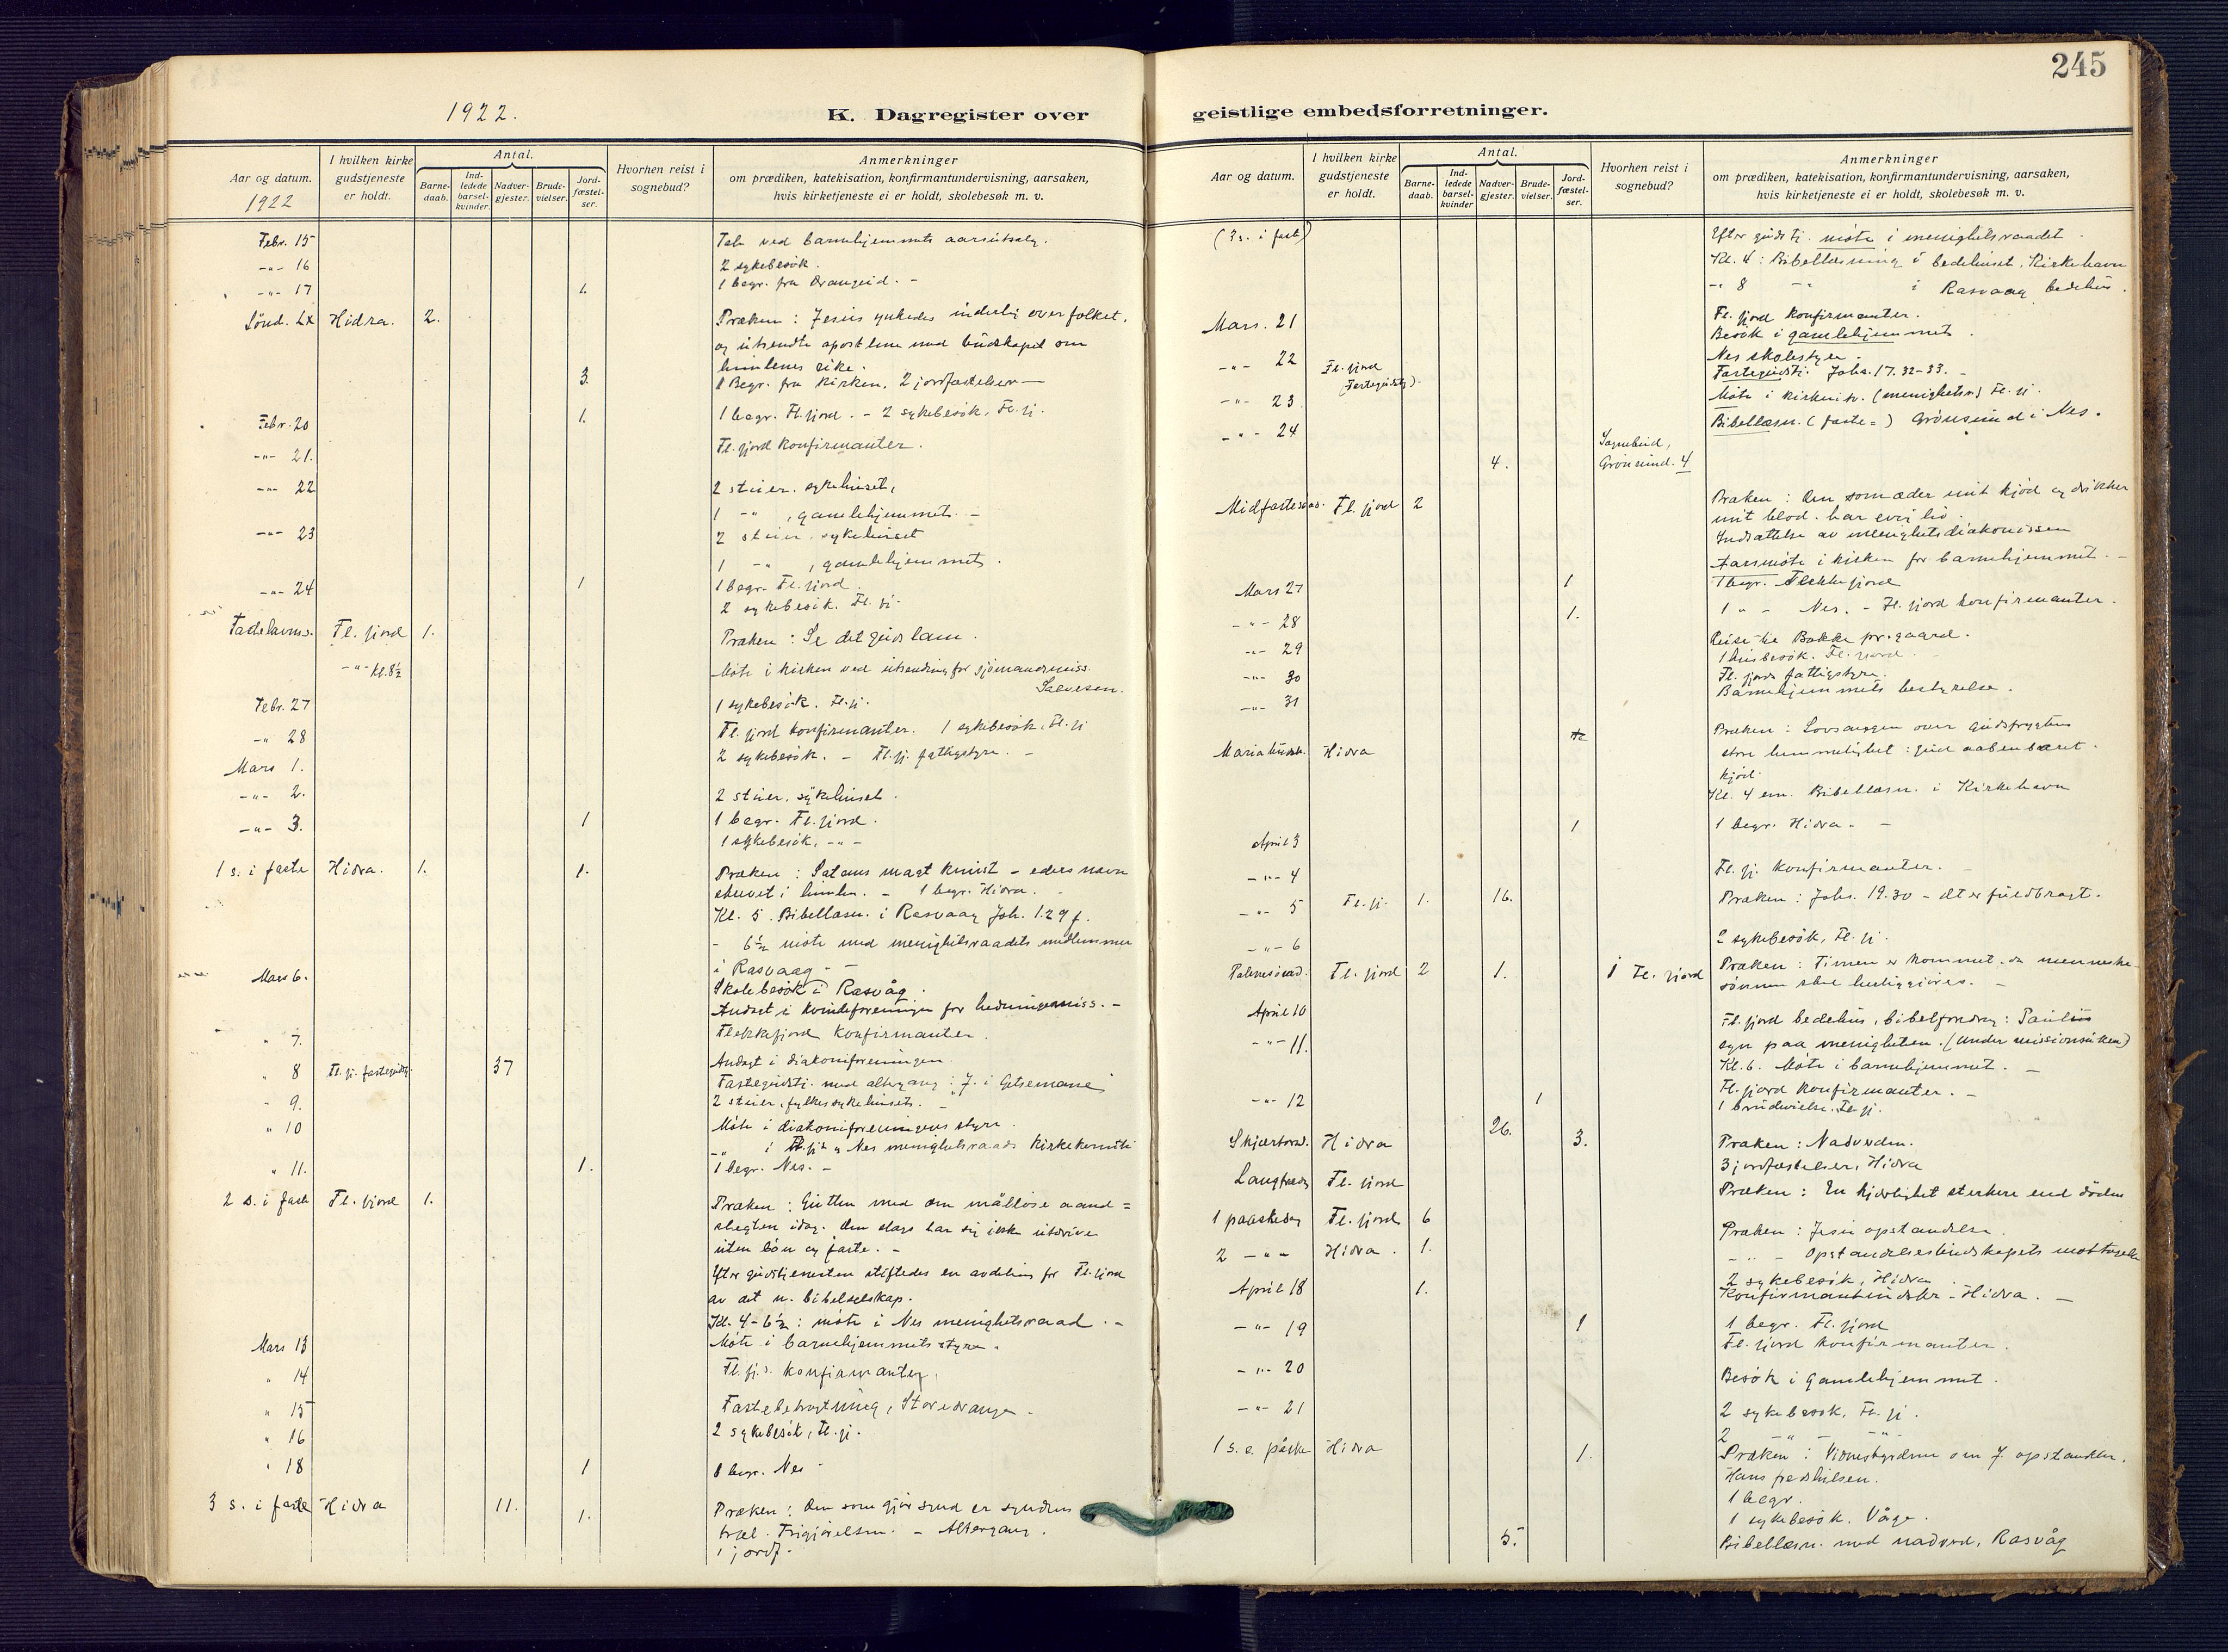 245
1922.
K. Dagregister over
geistlige embedsforretninger.
Aar og datum.
1922
I hvilken kirke
gudstjeneste
er holdt.
Antal.
Barne-
daab.
Ind-
ledede
barsel-
kvinder.
Nadver-
gjester.
Brude-
vielser.
Jord-
fæstel-
ser.
Hvorhen reist i
sognebud?
Anmerkninger
om prædiken, katekisation, konfirmantundervisning, aarsaken,
hvis kirketjeneste ei er holdt, skolebesøk m. v.
Febr. 15 Tale ved barnehjemmets aarsutsalg.
-"- 16 2 sykebesök.
-"- 17 1. 1 begr. fra Drangeid. -
Sönd. LX Hidra. 2. Præken: Jesus ynkedes inderlig over folket,
og utsendte apostlene med budskapet om
himlenes rike.
3. 1 Begr. fra Kirken, 2 jordfæstelser -
Febr. 20 1. 1 begr. Fl.fjord. - 2 sykebesök, Fl.fj.
-"- 21. Fl.fjord konfirmanter.
-"- 22 2 stuer, sykehuset,
1 -"- , gamlehjemmet. -
-"- 23 2 stuer, sykehuset
1 -"- , gamlehjemmet.
-"- 24 1 1 begr. Fl.fjord.
2 sykebesök. Fl.fj.
Fastelavns. Fl.fjord 1. Præken: Se det guds lam.
-"- kl. 8½ Möte i kirken ved utsending for sjömandsmiss.
Salvesen.
Febr. 27 1 sykebesök. Fl.fj.
-" 28 Fl.fjord konfirmanter. 1 sykebesök, Fl.fj
Mars 1. 2 sykebesök. - Fl.fj. fattigstyre. -
-"- 2. 2 stuer, sykehuset.
-"- 3. 1 1 begr. Fl.fjord.
1 sykebesök, -"-
1 s. i faste Hidra. 1. 1. Præken: Satans magt knust - eders navn
skrevet i himlen. - 1 begr. Hidra.
Kl. 5. Bibellæsn. i Rasvaag Joh. 1.29 f.
- 6½ möte med menighetsraadets medlemmer
i Rasvaag. -
Mars 6. Skolebesök i Rasvåg.
Andagt i kvindeforeningen for hedningemiss. -
" 7. Flekkefjord konfirmanter.
Andagt i diakoniforeningen.
" 8 Fl.fj. fastegudstj. 37 Fastegudstj. med altergang: "J. i Getsemane"
" 9. 2 stuer, fylkessykehuset. -
" 10 Möte i diakoniforeningens styre.
-" i Fl.fj. og Nes menighetsraads kirkekomite
" 11. 1. 1 begr. Nes. -
2 s. i faste Fl.fjord 1. Præken: Gutten med den målløse aand =
slegten idag. Den slags lar sig ikke utdrive
uten bön og faste. -
Efter gudstjenesten stiftedes en avdeling for Fl.fjord
av det n. bibelselskap.
Kl. 4-6½: möte i Nes menighetsraad. -
Mars 13 Möte i barnehjemmets styre.
" 14 Fl.fj.s konfirmanter,
" 15 Fastebetragtning, Storedrange.
" 16 2 sykebesök, Fl.fj.
" 18 1 1 begr. Nes
3 s. i faste Hidra 11. 1. Præken: Den som gjör synd er syndens
træl. Frigjörelsen. - Altergang.
1 jordf.
Aar og datum.
I hvilken kirke
gudstjeneste
er holdt.
Antal.
Barne-
daab.
Ind-
ledede
barsel-
kvinder
Nadver-
gjester.
Brude-
vielser.
Jord-
fæstel-
ser.
Hvorhen reist i
sognebud?
Anmerkninger
om prædiken, katekisation, konfirmantundervisning, aarsaken,
hvis kirketjeneste ei er holdt, skolebesøk m. v.
(3 s. i faste) Efter gudstj. möte i menighetsraadet.
Kl. 4: Bibellæsning i bedehuset, Kirkehavn
-" 8 -"- i Rasvaag bedehus.
Mars. 21 Fl.fjord konfirmanter.
Besök i gamlehjemmet.
-"- 22 Fl.fjord Nes skolestyre.
Fastegudstj. Fastegudstj. Johs. 17. 32-33. -
-"- 23 Möte i kirkeutv. (menighetens) Fl.fj.
-"- 24 Bibellæsn. (faste=) Grönsund i Nes.
4. Sognebud,
Grönsund. 4
Midfastesönd. Fl.fjord 2 Præken: Den som æder mit kjöd og drikker
mit blod, har evig liv.
Indsættelse av menighetsdiakonissen
Aarsmöte i kirken for barnehjemmet. -
Mars 27 1 1 begr. Flekkefjord
-"- 28 1. 1 " - Nes. - Fl.fjord konfirmanter.
-"- 29 Reise til Bakke pr.gaard.
1 husbesök. Fl.fjord.
-"- 30 Fl.fjords fattigstyre.
-"- 31 Barnehjemmets bestyrelse.
Maria budsk. Hidra Præken: Lovsangen over gudsfrygtens
store hemmelighet: gud aabenbaret.
kjöd.
Kl. 4 em. Bibellæsn. i Kirkehavn
April 3 1 1 begr. Hidra. -
-"- 4 Fl.fj. konfirmanter.
-"- 5 Fl.fj. 1. 16. Præken: Johs. 19.30 - det er fuldbragt.
-"- 6 2 sykebesök, Fl.fj.
Palmesönd. Fl.fjord 2 1. 1 Fl.fjord Præken: Timen er kommet, da menneske-
sönnen skal herliggjöres. -
April 10 Fl.fjord bedehus, bibelforedrag: Pauli
-"- 11. syn paa menigheten. (Under missionsuken)
Kl. 6. Möte i barnehjemmet. -
Fl.fjord konfirmanter. -
-"- 12 1 1 brudevielse. Fl.fj.
Skjærtorsd. Hidra 26. 3. Præken: Nadverden.
3 jordfæstelser, Hidra
Langfredag Fl.fjord Præken: En kjærlighet sterkere end döden
1 paaskedag Fl.fjord 6 Præken: Jesu opstandelse.
2 -"- Hidra. 1. -"- Opstandelsesbudskapets mottagelse
April 18 1. 2 sykebesök, Hidra
Konfirmantindskr. - Hidra. -
-"- 19 1 1 begr. Fl.fjord
Fl.fjord konfirmanter.
-"- 20 Besök i gamlehjemmet.
-"- 21 2 sykebesök, Fl.fj.
2 -"- -"-
1 s. e. påske Hidra 1. Præken: Vidnesbyrdene om J. opstandelse.
Hans fredshilsen.
1 begr.
1 sykebesök. Våge.
5. Bibellæsn. med nadverd, Rasvåg